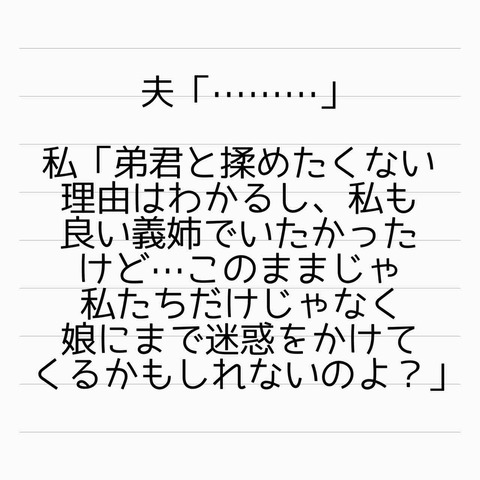 夫「………」
私「弟君と揉めたくない
理由はわかるし、私も
良い義姉でいたかった
けど…このままじゃ
私たちだけじゃなく
娘にまで迷惑をかけて
くるかもしれないのよ？」